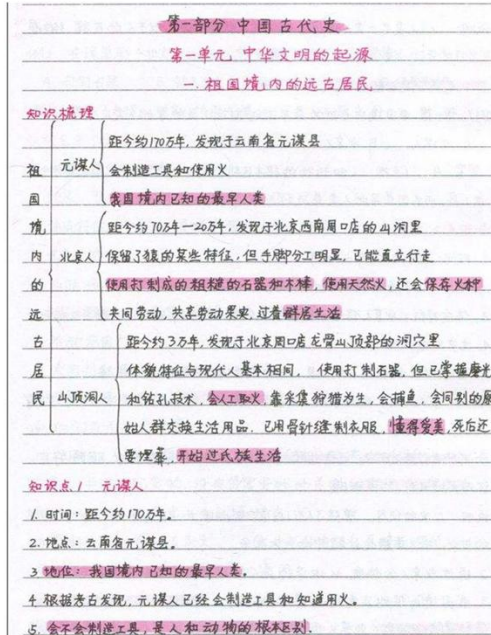 第一部分 中国古代史
第一单元，中华文明的起源
一.祖国境内的远古居民，
知识梳理
祖国境内的远古居民
元谋人
距今约170万年，发现于云南省元谋县
会制造工具和使用火
我国境内已知的最早人类
北京人
距今约70万年—20万年，发现于北京西南周口店的山洞里
保留了猿的某些特征，但手脚分工明显，已能直立行走
使用打制成的粗糙的石器和木棒，使用天然火，还会保存火种
共同劳动，共享劳动果实，过着群居生活
山顶洞人
距今约3万年，发现于北京周口店龙骨山顶部的洞穴里
体貌特征与现代人基本相同，使用打制石器，但已掌握磨光
和钻孔技术，会人工取火，靠采集狩猎为生，会捕鱼，会同别的原
始人群交换生活用品，已用骨针缝制衣服，懂得爱美，死后还
要埋葬，开始过氏族生活
知识点1 元谋人
1.时间：距今约170万年。
2.地点：云南省元谋县。
3.地位：我国境内已知的最早人类。
4.根据考古发现，元谋人已经会制造工具和知道用火。
5.会不会制造工具，是人和动物的根本区别.